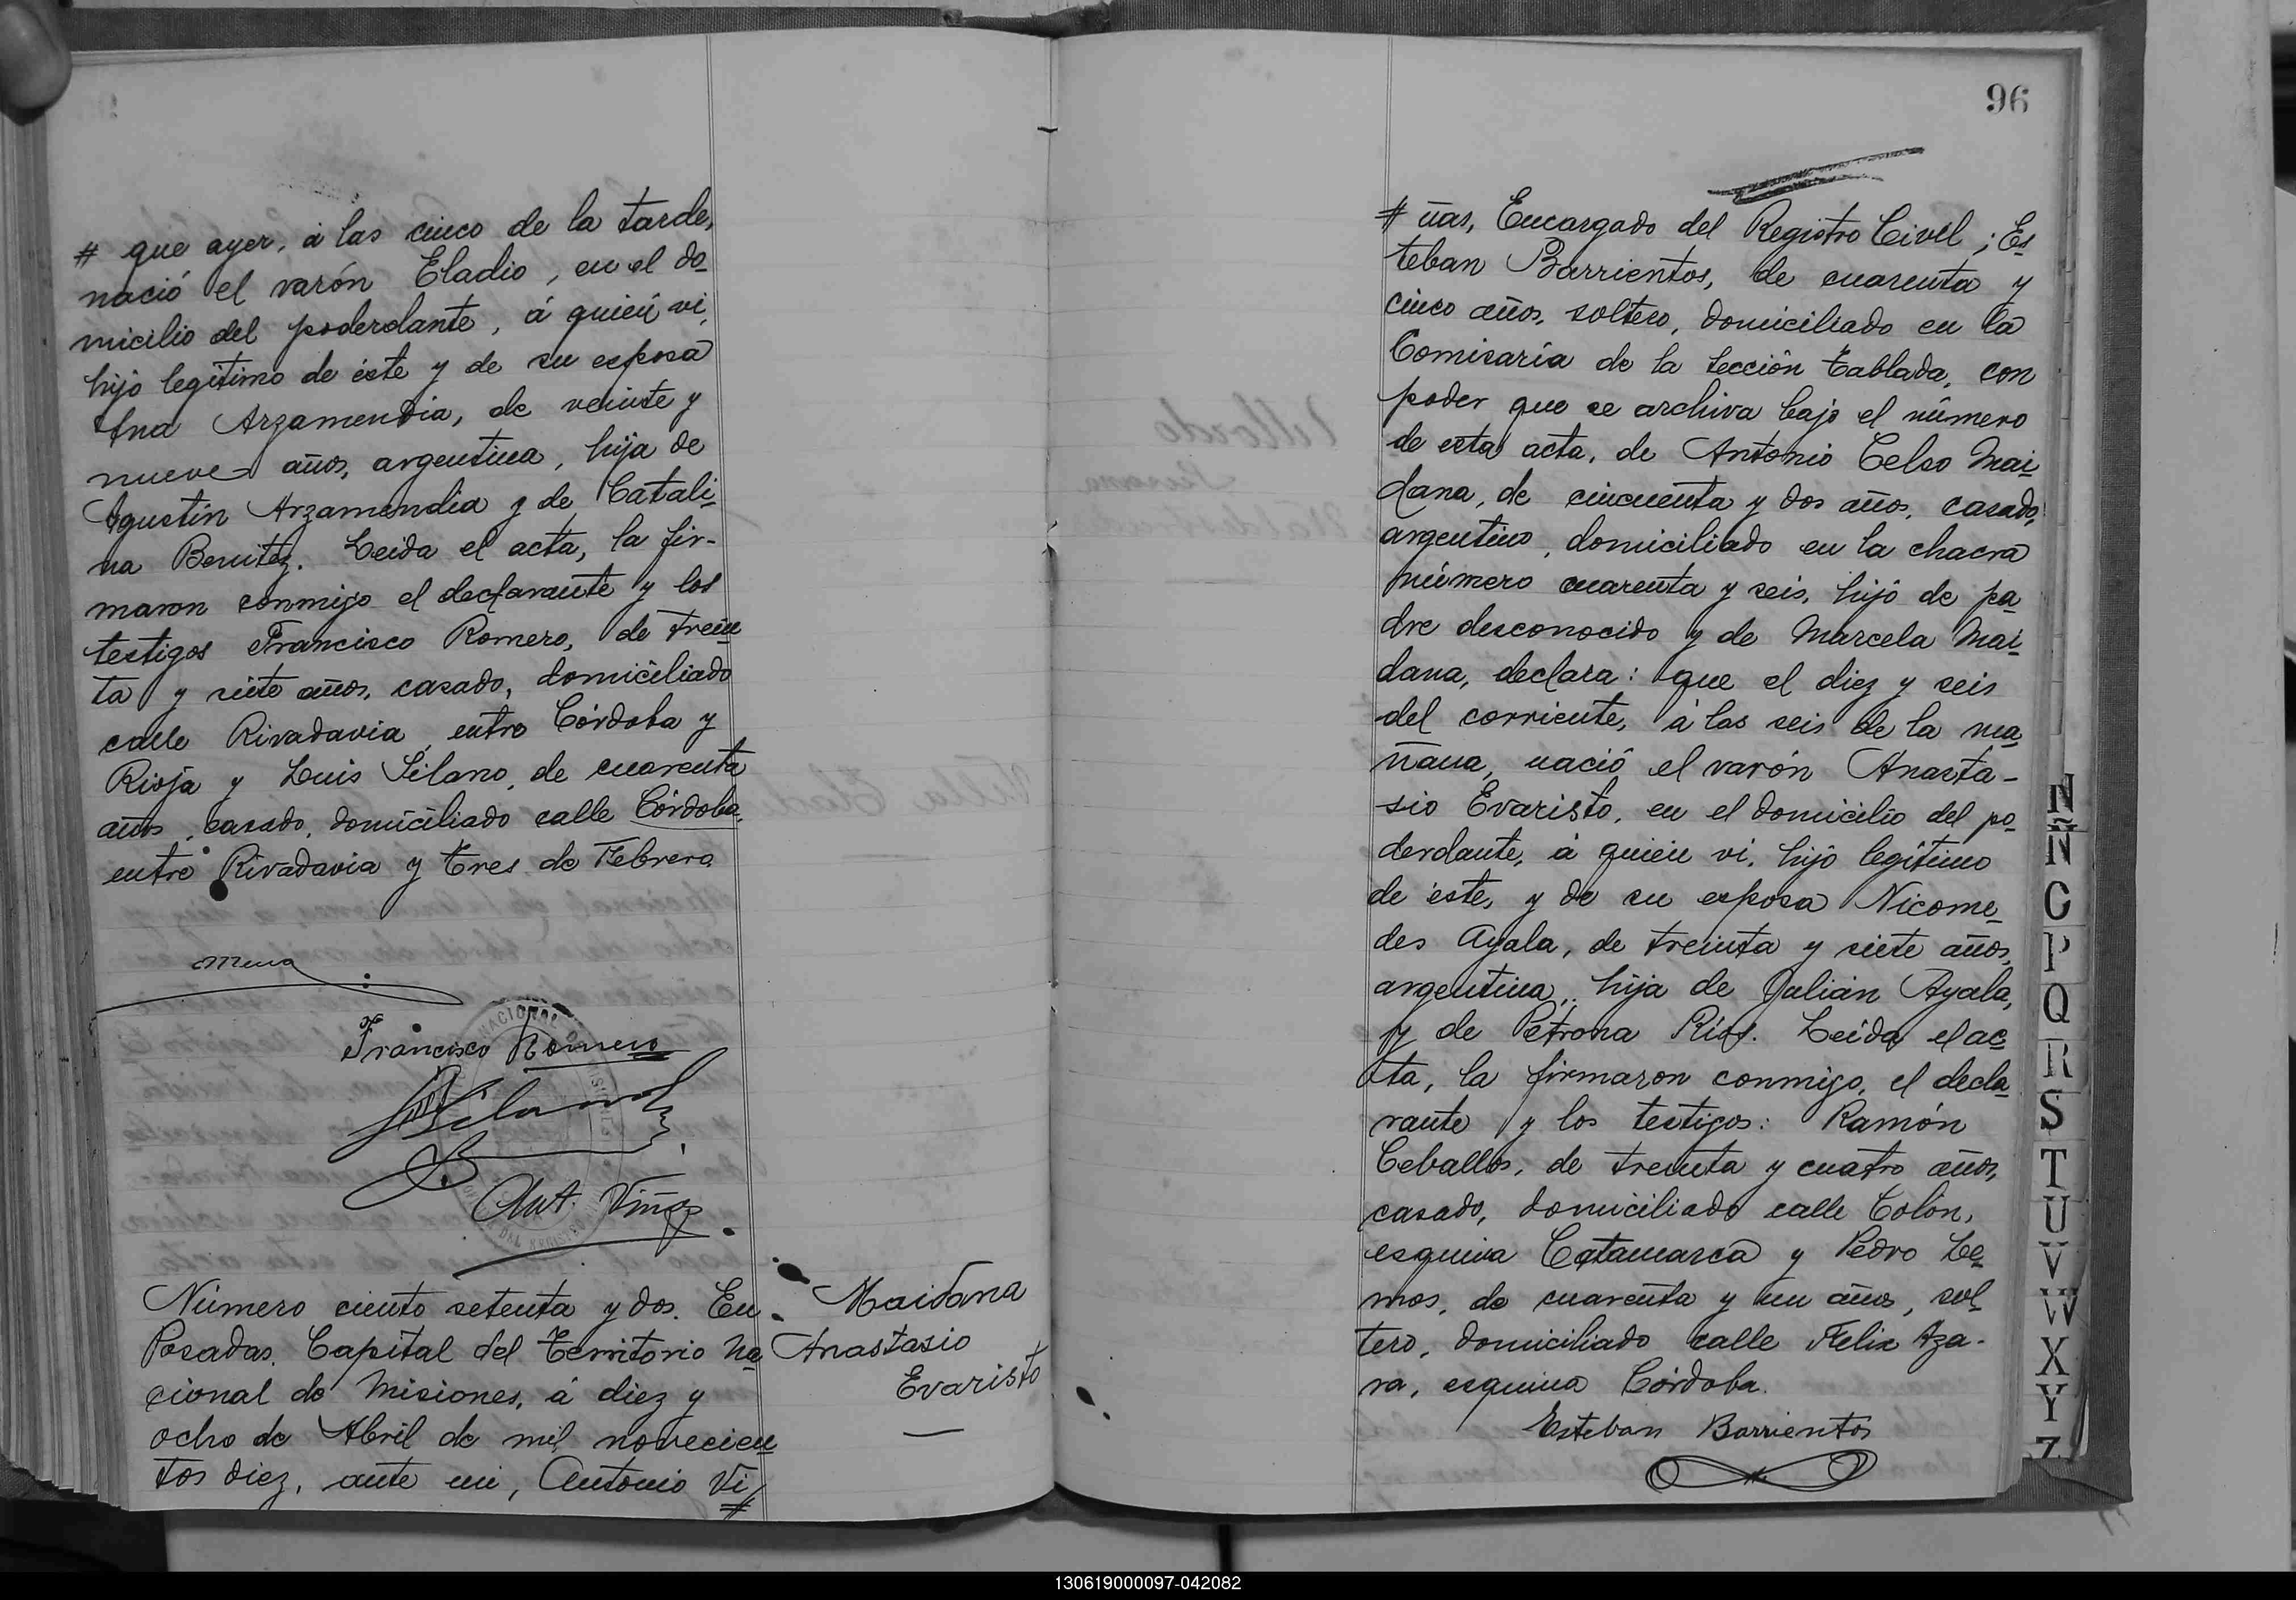 # que ayer, á las cinco de la tarde,
nació el varón Eladio, en el do_
micilio del poderdante, á quien vi,
hijo legítimo de éste y de su esposa
Ana Arzamendia, de veinte y
nueve años, argentina, hija de
Agustin Arzamendia y de Catali_
na Benitez. Leida el acta, la fir-
maron conmigo el declarante y los
testigos Francisco Romero, de trein_
ta y siete años, casado, domiciliado
calle Rivadavia, entre Córdoba y
Rioja y Luis Silano, de cuarenta
años, casado, domiciliado calle Córdoba,
entre Rivadavia y Tres de Febrero
Francisco Romero
Silano
Ant. Viñas
NACIONAL
DEL REGIS
Número ciento setenta y dos. En
Posadas, Capital del Territorio Na_
cional de Misiones, á diez y
ocho de Abril de mil novecien_
tos diez, ante mi, Antonio Vi #
Maidana
Anastasio
Evaristo
96
# ñas, Encargado del Registro Civil; Es_
teban Barrientos, de cuarenta y
cinco años, soltero, domiciliado en la
Comisaría de la sección Tablada, con
poder que se archiva bajo el número
de esta acta, de Antonio Celso Mai_
dana, de cincuenta y dos años, casado,
argentino, domiciliado en la chacra
número cuarenta y seis, hijo de pa_
dre desconocido y de Marcela Mai_
dana, declara: que el diez y seis
del corriente, á las seis de la ma_
ñana, nació el varón Anasta-
sio Evaristo, en el domicilio del po_
derdante, á quien vi, hijo legítimo
de éste, y de su esposa Nicome_
des Ayala, de treinta y siete años,
argentina, hija de Julián Ayala,
y de Petrona Ríos. Leida el ac_
ta, la firmaron conmigo, el decla_
rante y los testigos: Ramón
Ceballos, de treinta y cuatro años,
casado, domiciliado calle Colón,
esquina Catamarca y Pedro Le_
mos, de cuarenta y un años, sol_
tero, domiciliado calle Felix Aza-
ra, esquina Córdoba.
Esteban Barrientos
N
Ñ
O
P
Q
R
S
T
U
V
W
X
Y
Z
130619000097-042082